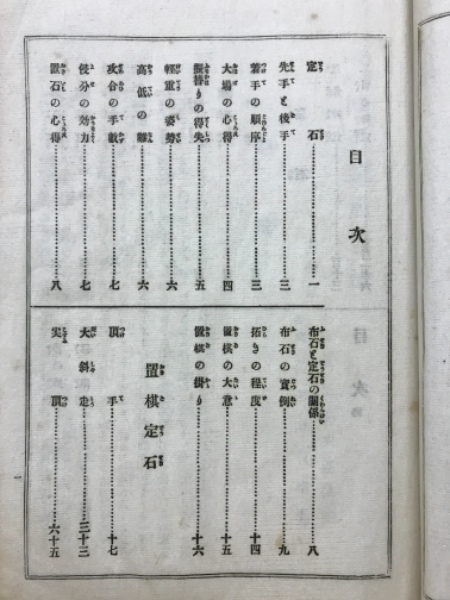 目次
定石……一
先手と後手……三
着手の順序……三
大場の心得……四
振替りの得失……五
輕重の姿勢……六
高低の辯……六
攻合の手數……七
侵分の効力……七
置石の心得……八
布石と定石の關係……八
布石の實例……九
拓きの程度……十四
置棋の大意……十五
置棋の掛り……十六
置棋定石
頂手……十七
大斜走……三十三
尖頂……六十五